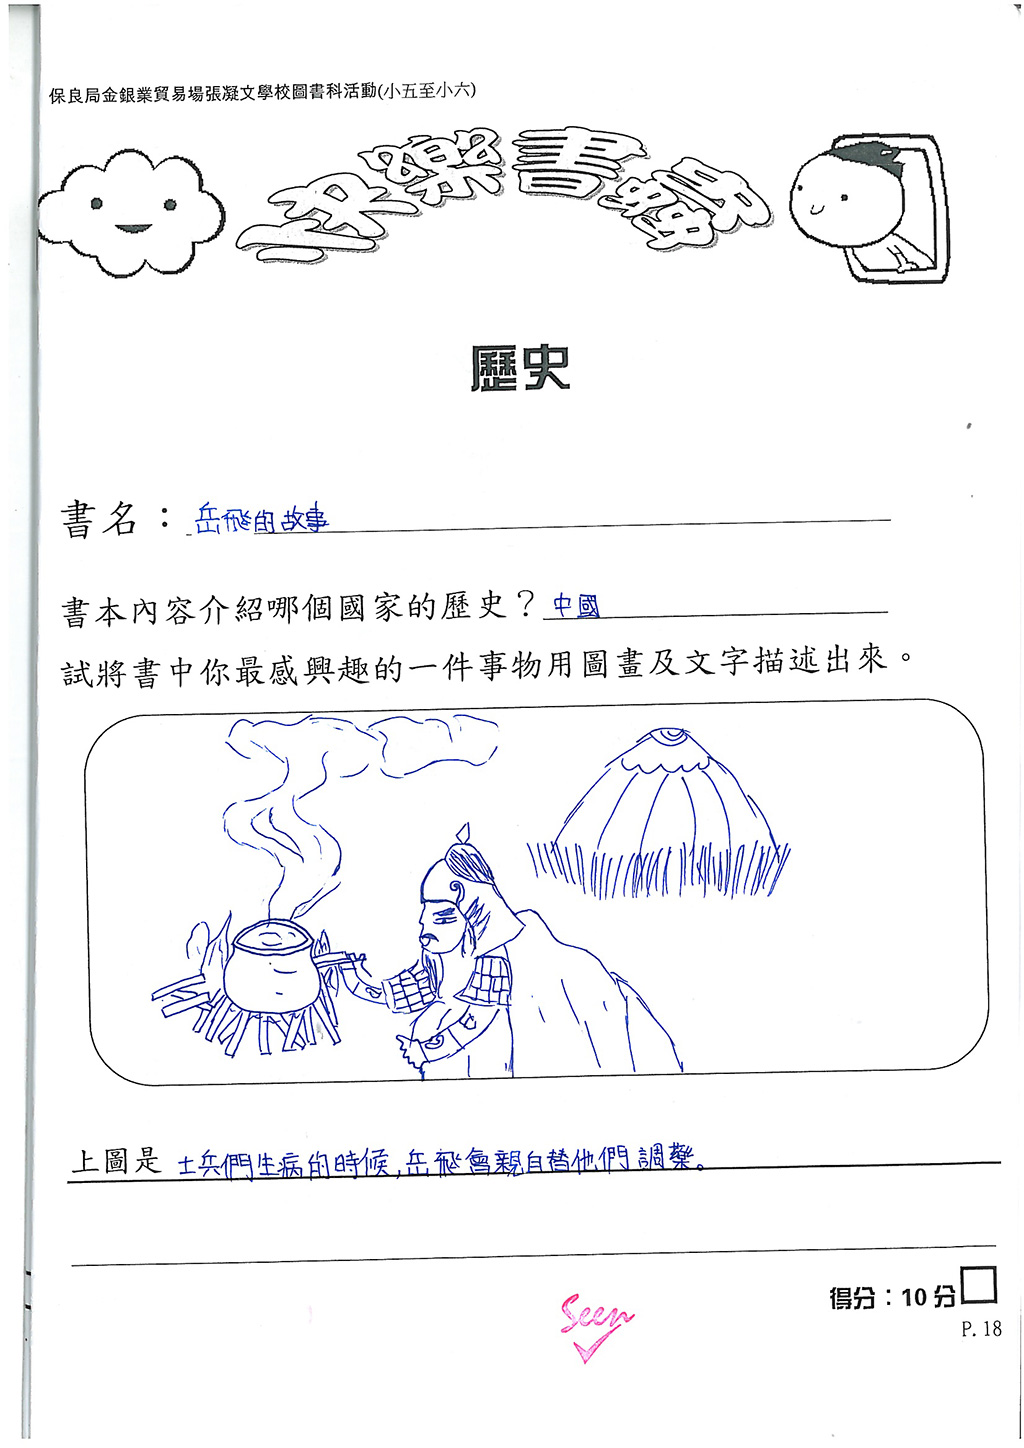 保良局金銀業貿易場張凝文學校圖書科活動(小五至小六)
書
歷史
書名： 岳飛的故事
書本內容介紹哪個國家的歷史？中國
試將書中你最感興趣的一件事物用圖畫及文字描述出來。
上圖是 士兵們生病的時候,岳飛會親自替他們調藥。
得分：10 分
P. 18
Seen